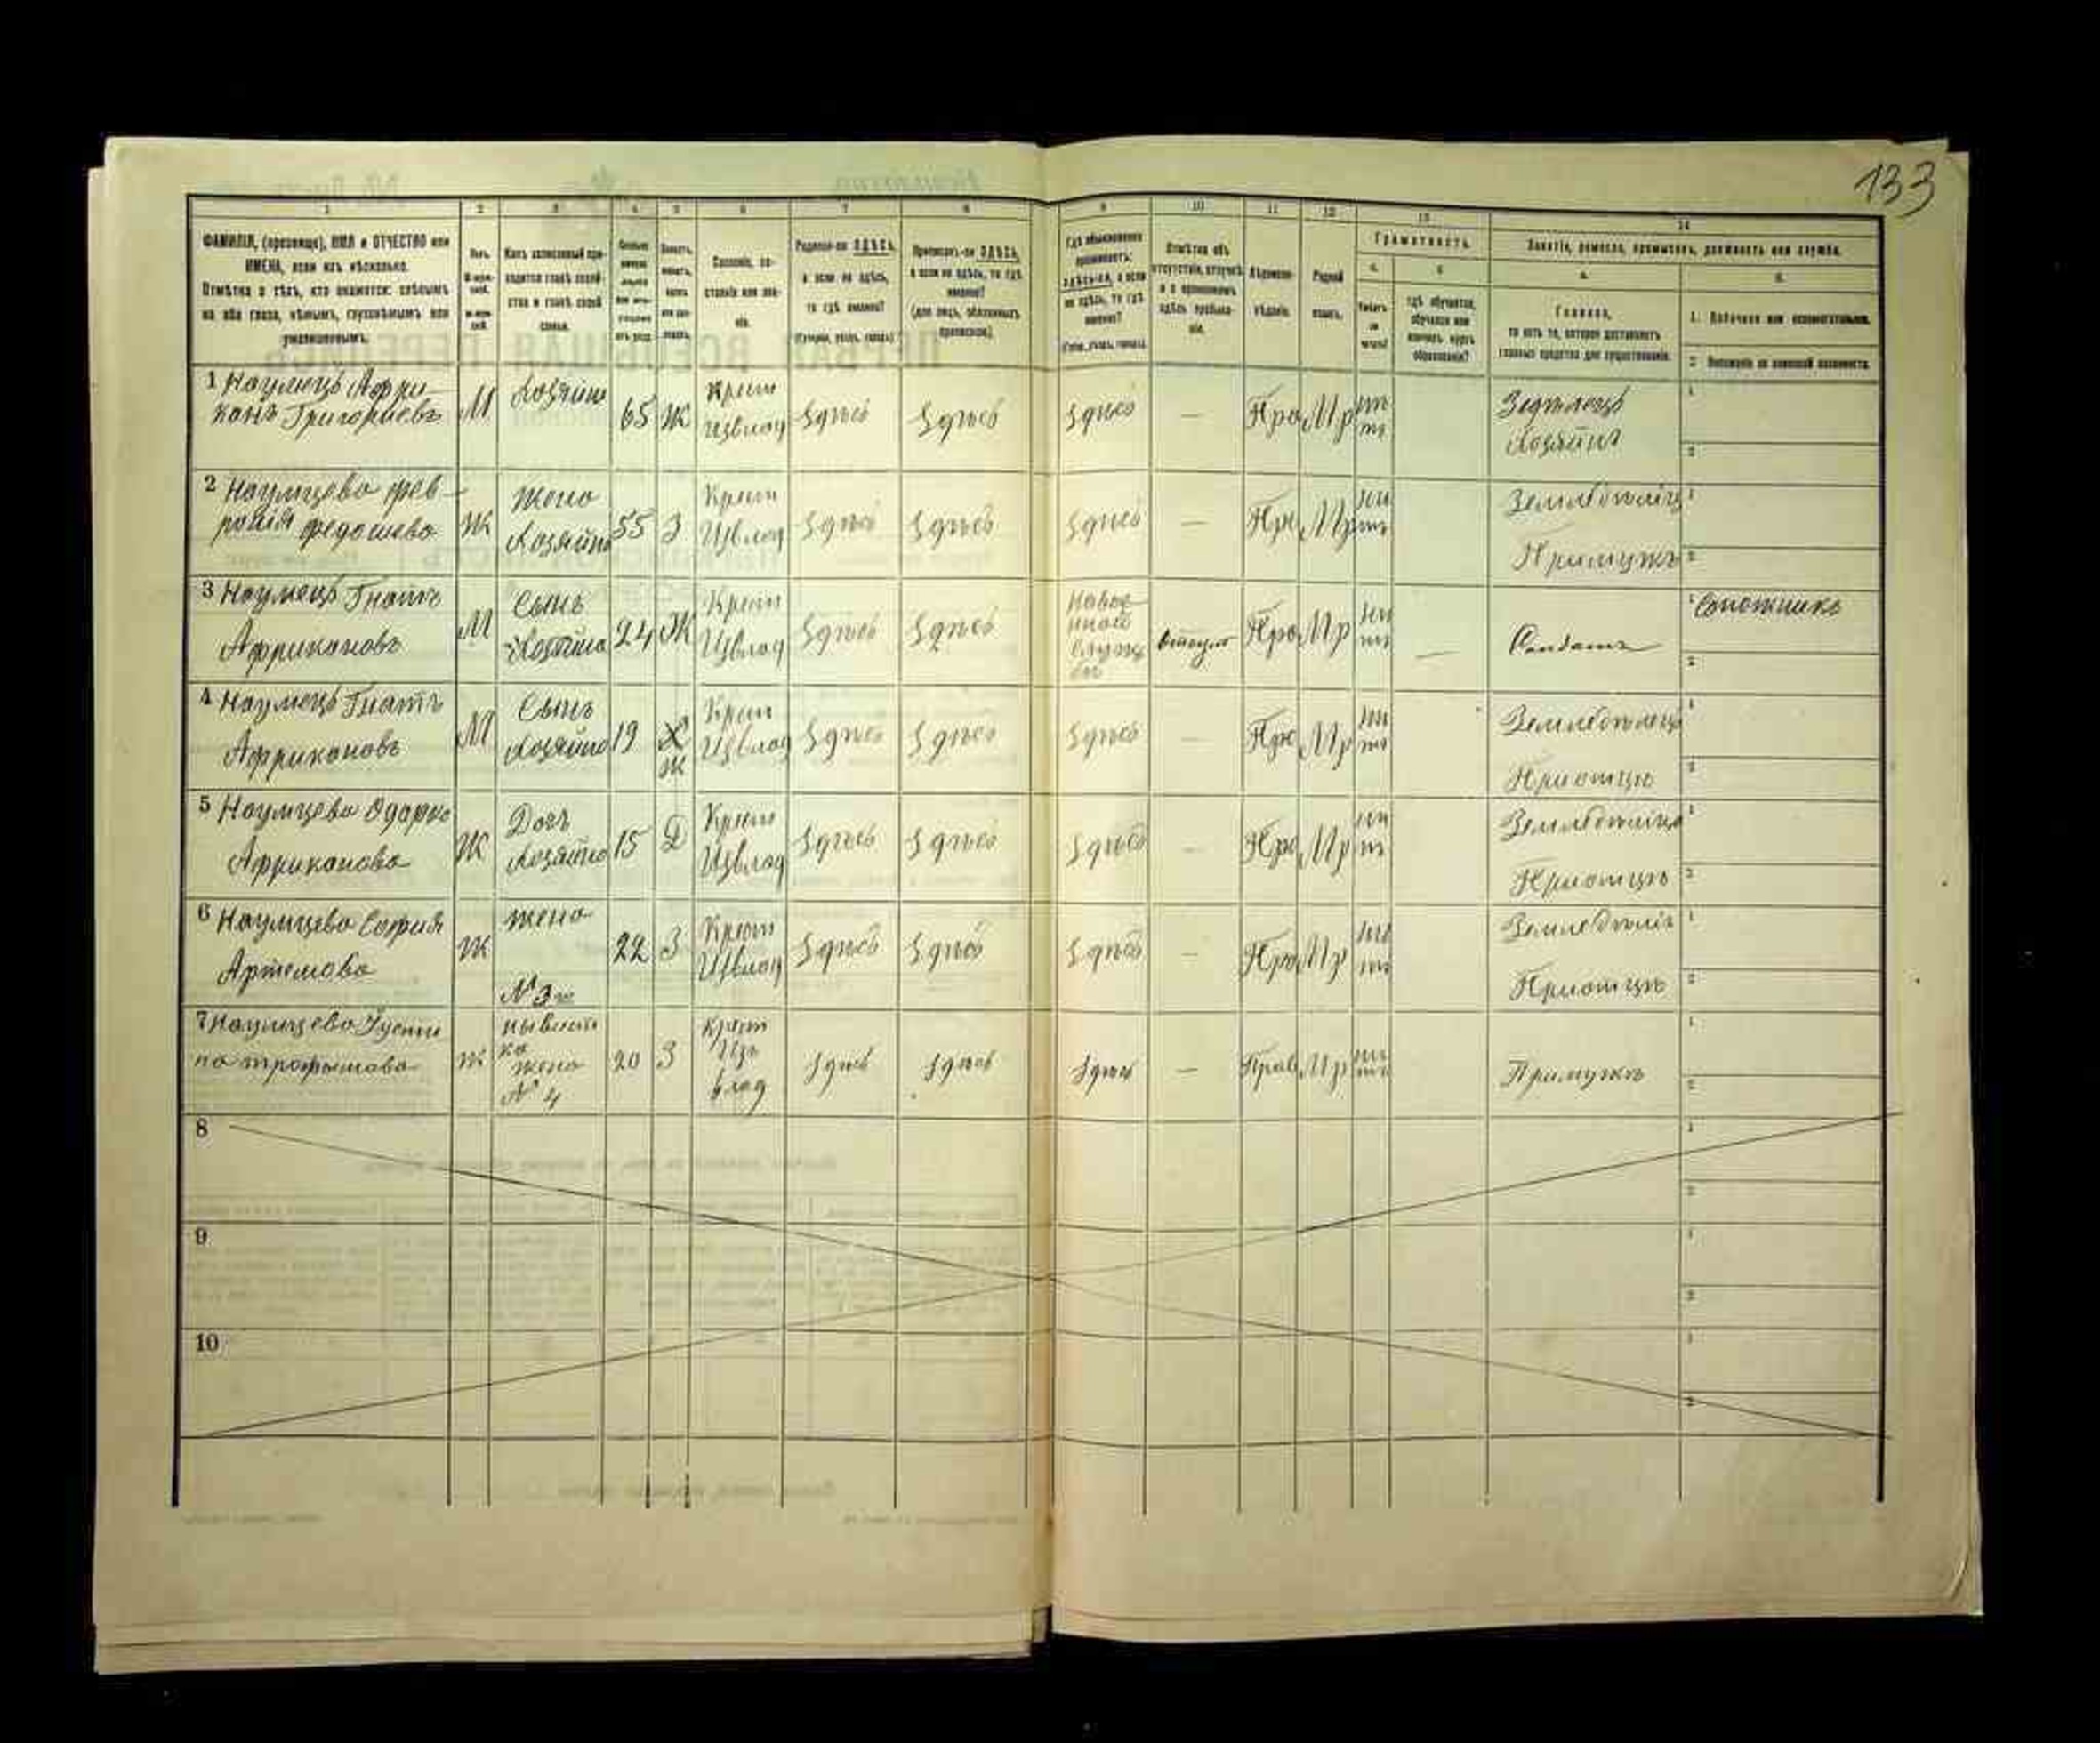 133
1 2 3 4 5 6 7 8 9 10 11 12 13 14
ФАМИЛІЯ, (прозвище), ИМЯ и ОТЧЕСТВО или
ИМЕНА, если ихъ нѣсколько.
Отмѣтка о тѣхъ, кто окажется: слѣпымъ
на оба глаза, нѣмымъ, глухонѣмымъ или
умалишеннымъ.
Полъ.
Какъ записанный при-
ходится главѣ хозяй-
ства и главѣ своей
семьи.
Сословіе, со-
стояніе или зва-
ніе.
Родился-ли ЗДѢСЬ,
а если не здѣсь,
то гдѣ именно?
(Губернія, уѣздъ, городъ)
Приписанъ-ли ЗДѢСЬ,
а если не здѣсь, то гдѣ
именно?
(для лицъ, обязанныхъ
припиской)
Гдѣ обыкновенно
проживаетъ:
здѣсь-ли, а если
не здѣсь, то гдѣ
именно?
(Губ., уѣздъ, городъ)
Отмѣтка объ
отсутствіи, отлучкѣ
и о временномъ
здѣсь пребыва-
ніи.
Вѣроиспо-
вѣданіе.
Родной
языкъ.
Грамотность.
а. б.
Умѣетъ
ли
читать?
Гдѣ обучается,
обучался или
кончилъ курсъ
образованія?
Занятіе, ремесло, промыселъ, должность или служба.
а. б.
Главное,
то есть то, которое доставляетъ
главныя средства для существованія.
1. Побочное или вспомогательное.
2. Положеніе по воинской повинности.
1 Наумецъ Афри-
канъ Григориевъ М Хозяинъ 65 Ж Крест Извлад Здѣсь Здѣсь Здѣсь — Пра Мр нѣтъ Хозяинъ
2 Наумцева Фев-
ронія Федошева Ж Жена Хозяина 55 З Крест Извлад Здѣсь Здѣсь Здѣсь — Пра Мр нѣтъ Примужѣ
3 Наумецъ Гнатъ
Африкановъ М Сынъ Хозяина 24 Ж Крест Извлад Здѣсь Здѣсь Навое-
нной
служ
бѣ Пра Мр нѣтъ — Солдатъ Сапожникъ
4 Наумецъ Гнатъ
Африкановъ М Сынъ Хозяина 19 Х Ж Крест Извлад Здѣсь Здѣсь Здѣсь — Пра Мр нѣтъ Землѣдѣлецъ Приотцѣ
5 Наумцева Одарка
Африканова Ж Дочь Хозяина 15 Д Крест Извлад Здѣсь Здѣсь Здѣсь — Пра Мр нѣтъ Приотцѣ
6 Наумцева София
Артемова Ж жена № 3го 22 З Крест Извлад Здѣсь Здѣсь Здѣсь — Пра Мр нѣтъ Приотцѣ
7 Наумцева Густи
на трофымова Ж нывѣст
ка
жена
№ 4 20 З Крест
Изъ
влад Здѣсь Здѣсь Здѣсь — Прав Мр нѣтъ Примужѣ
8
9
10